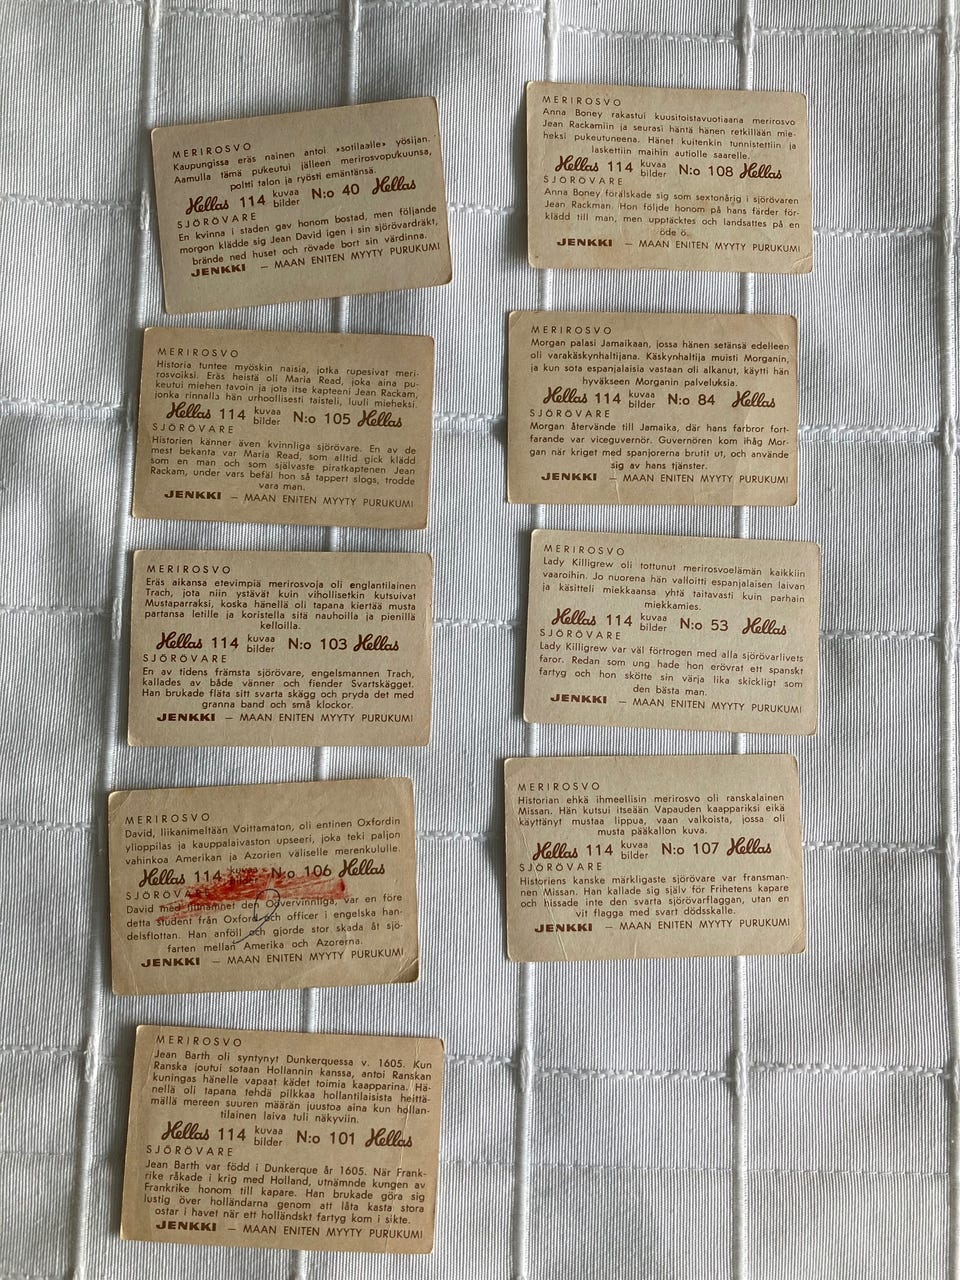 MERIROSVO
Kaupungissa eräs nainen antoi »sotilaalle» yösijan.
Aamulla tämä pukeutui jälleen merirosvopukuunsa,
poltti talon ja ryösti emäntänsä.
Hellas 114 kuvaa bilder N:o 40 Hellas
SJÖRÖVARE
En kvinna i staden gav honom bostad, men följande
morgon klädde sig Jean David igen i sin sjörövardräkt,
brände ned huset och rövade bort sin värdinna.
JENKKI — MAAN ENITEN MYYTY PURUKUMI
MERIROSVO
Historia tuntee myöskin naisia, jotka rupesivat meri-
rosvoiksi. Eräs heistä oli Maria Read, joka aina pu-
keutui miehen tavoin ja jota itse kapteeni Jean Rackam,
jonka rinnalla hän urhoollisesti taisteli, luuli mieheksi.
Hellas 114 kuvaa bilder N:o 105 Hellas
SJÖRÖVARE
Historien känner även kvinnliga sjörövare. En av de
mest bekanta var Maria Read, som alltid gick klädd
som en man och som självaste piratkaptenen Jean
Rackam, under vars befäl hon så tappert slogs, trodde
vara man.
JENKKI — MAAN ENITEN MYYTY PURUKUMI
MERIROSVO
Eräs aikansa etevimpiä merirosvoja oli englantilainen
Trach, jota niin ystävät kuin vihollisetkin kutsuivat
Mustaparraksi, koska hänellä oli tapana kiertää musta
partansa letille ja koristella sitä nauhoilla ja pienillä
kelloilla.
Hellas 114 kuvaa bilder N:o 103 Hellas
SJÖRÖVARE
En av tidens främsta sjörövare, engelsmannen Trach,
kallades av både vänner och fiender Svartskägget.
Han brukade fläta sitt svarta skägg och pryda det med
granna band och små klockor.
JENKKI — MAAN ENITEN MYYTY PURUKUMI
MERIROSVO
David, liikanimeltään Voittamaton, oli entinen Oxfordin
ylioppilas ja kauppalaivaston upseeri, joka teki paljon
vahinkoa Amerikan ja Azorien väliselle merenkululle.
Hellas 114 kuvaa bilder N:o 106 Hellas
SJÖRÖVARE
David med tillnamnet den Oövervinnliga, var en före
detta student från Oxford och officer i engelska han-
delsflottan. Han anföll och gjorde stor skada åt sjö-
farten mellan Amerika och Azorerna.
JENKKI — MAAN ENITEN MYYTY PURUKUMI
MERIROSVO
Jean Barth oli syntynyt Dunkerquessa v. 1605. Kun
Ranska joutui sotaan Hollannin kanssa, antoi Ranskan
kuningas hänelle vapaat kädet toimia kaapparina. Hä-
nellä oli tapana tehdä pilkkaa hollantilaisista heittä-
mällä mereen suuren määrän juustoa aina kun hollan-
tilainen laiva tuli näkyviin.
Hellas 114 kuvaa bilder N:o 101 Hellas
SJÖRÖVARE
Jean Barth var född i Dunkerque år 1605. När Frank-
rike råkade i krig med Holland, utnämnde kungen av
Frankrike honom till kapare. Han brukade göra sig
lustig över holländarna genom att låta kasta stora
ostar i havet när ett holländskt fartyg kom i sikte.
JENKKI — MAAN ENITEN MYYTY PURUKUMI
MERIROSVO
Anna Boney rakastui kuusitoistavuotiaana merirosvo
Jean Rackamiin ja seurasi häntä hänen retkillään mie-
heksi pukeutuneena. Hänet kuitenkin tunnistettiin ja
laskettiin maihin autiolle saarelle.
Hellas 114 kuvaa bilder N:o 108 Hellas
SJÖRÖVARE
Anna Boney förälskade sig som sextonårig i sjörövaren
Jean Rackman. Hon följde honom på hans färder för-
klädd till man, men upptäcktes och landsattes på en
öde ö.
JENKKI — MAAN ENITEN MYYTY PURUKUMI
MERIROSVO
Morgan palasi Jamaikaan, jossa hänen setänsä edelleen
oli varakäskynhaltijana. Käskynhaltija muisti Morganin,
ja kun sota espanjalaisia vastaan oli alkanut, käytti hän
hyväkseen Morganin palveluksia.
Hellas 114 kuvaa bilder N:o 84 Hellas
SJÖRÖVARE
Morgan återvände till Jamaika, där hans farbror fort-
farande var viceguvernör. Guvernören kom ihåg Mor-
gan när kriget med spanjorerna brutit ut, och använde
sig av hans tjänster.
JENKKI — MAAN ENITEN MYYTY PURUKUMI
MERIROSVO
Lady Killigrew oli tottunut merirosvoelämän kaikkiin
vaaroihin. Jo nuorena hän valloitti espanjalaisen laivan
ja käsitteli miekkaansa yhtä taitavasti kuin parhain
miekkamies.
Hellas 114 kuvaa bilder N:o 53 Hellas
SJÖRÖVARE
Lady Killigrew var väl förtrogen med alla sjörövarlivets
faror. Redan som ung hade hon erövrat ett spanskt
fartyg och hon skötte sin värja lika skickligt som
den bästa man.
JENKKI — MAAN ENITEN MYYTY PURUKUMI
MERIROSVO
Historian ehkä ihmeellisin merirosvo oli ranskalainen
Missan. Hän kutsui itseään Vapauden kaappariksi eikä
käyttänyt mustaa lippua, vaan valkoista, jossa oli
musta pääkallon kuva.
Hellas 114 kuvaa bilder N:o 107 Hellas
SJÖRÖVARE
Historiens kanske märkligaste sjörövare var fransman-
nen Missan. Han kallade sig själv för Frihetens kapare
och hissade inte den svarta sjörövarflaggan, utan en
vit flagga med svart dödsskalle.
JENKKI — MAAN ENITEN MYYTY PURUKUMI